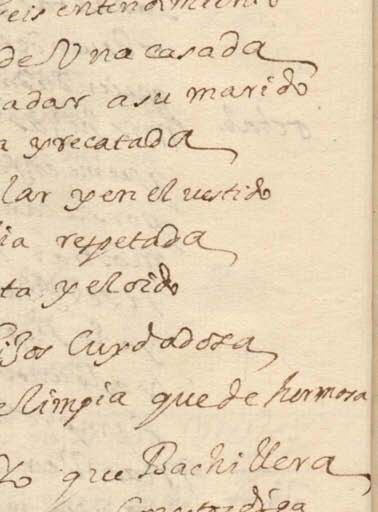 seis entendimiento
de Una casada
adar a su marido
a y recatada
lar y en el vestido
ia respetada
ta y el oido
ijos Cuydadosa
limpia que de hermosa
que Bachillera